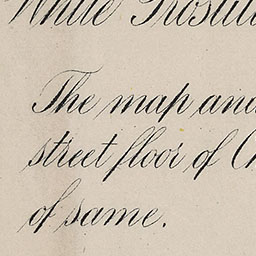 White Prostitu
The map and
street floor of C
of same.